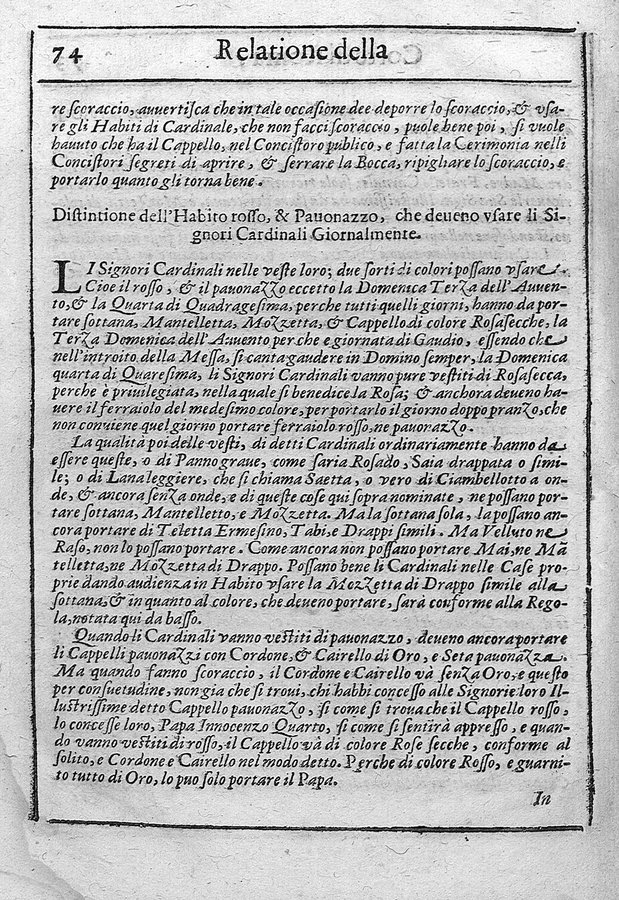 74 Relatione della
re scoraccio, auuertisca che in tale occasione dee deporre lo scoraccio, & vsa-
re gli Habiti di Cardinale, che non facci scoraccio, puole bene poi, si vuole
hauuto che ha il Cappello, nel Concistoro publico, e fatta la Cerimonia nelli
Concistori segreti di aprire, & serrare la Bocca, ripigliare lo scoraccio, e
portarlo quanto gli torna bene.
Distintione dell'Habito rosso, & Pauonazzo, che deueno vsare li Si-
gnori Cardinali Giornalmente.
LI Signori Cardinali nelle veste loro; due sorti di colori possano vsare
Cioe il rosso, & il pauonazzo eccetto la Domenica Terza dell'Auuen-
to, & la Quarta di Quadragesima, perche tutti quelli giorni, hanno da por-
tare sottana, Mantelletta, Mozzetta, & Cappello di colore Rosasecche, la
Terza Domenica dell'Auuento perche e giornata di Gaudio, essendo che
nell'introito della Messa, si canta gaudere in Domino semper, la Domenica
quarta di Quaresima, li Signori Cardinali vanno pure vestiti di Rosasecca,
perche è priuilegiata, nella quale si benedice la Rosa; & anchora deueno ha-
uere il ferraiolo del medesimo colore, per portarlo il giorno doppo pranzo, che
non conuiene quel giorno portare ferraiolo rosso, ne pauonazzo.
La qualità poi delle vesti, di detti Cardinali ordinariamente hanno da
essere queste, o di Panno graue, come saria Rosado, Saia drappata o simi-
le; o di Lana leggiere, che si chiama Saetta, o vero di Ciambellotto a on-
de, & ancora senza onde, e di queste cose qui sopra nominate, ne possano por-
tare sottana, Mantelletto, e Mozzetta. Ma la sottana sola, la possano an-
cora portare di Teletta Ermesino, Tabi, e Drappi simili. Ma Velluto ne
Raso, non lo possano portare. Come ancora non possano portare Mai, ne Mã
telletta, ne Mozzetta di Drappo. Possano bene li Cardinali nelle Case pro-
prie dando audienza in Habito vsare la Mozzetta di Drappo simile alla
sottana, & in quanto al colore, che deueno portare, sarà conforme alla Rego-
la, notata qui da basso.
Quando li Cardinali vanno vestiti di pauonazzo, deueno ancora portare
li Cappelli pauonazzi con Cordone, & Cairello di Oro, e Seta pauonazza.
Ma quando fanno scoraccio, il Cordone e Cairello và senza Oro, e questo
per consuetudine, non gia che si troui, chi habbi concesso alle Signorie loro Il-
lustrissime detto Cappello pauonazzo, si come si troua che il Cappello rosso,
lo concesse loro, Papa Innocenzo Quarto, si come si sentirà appresso, e quan-
do vanno vestiti di rosso, il Cappello và di colore Rose secche, conforme al
solito, e Cordone e Cairello nel modo detto. Perche di colore Rosso, e guarni-
to tutto di Oro, lo puo solo portare il Papa.
In